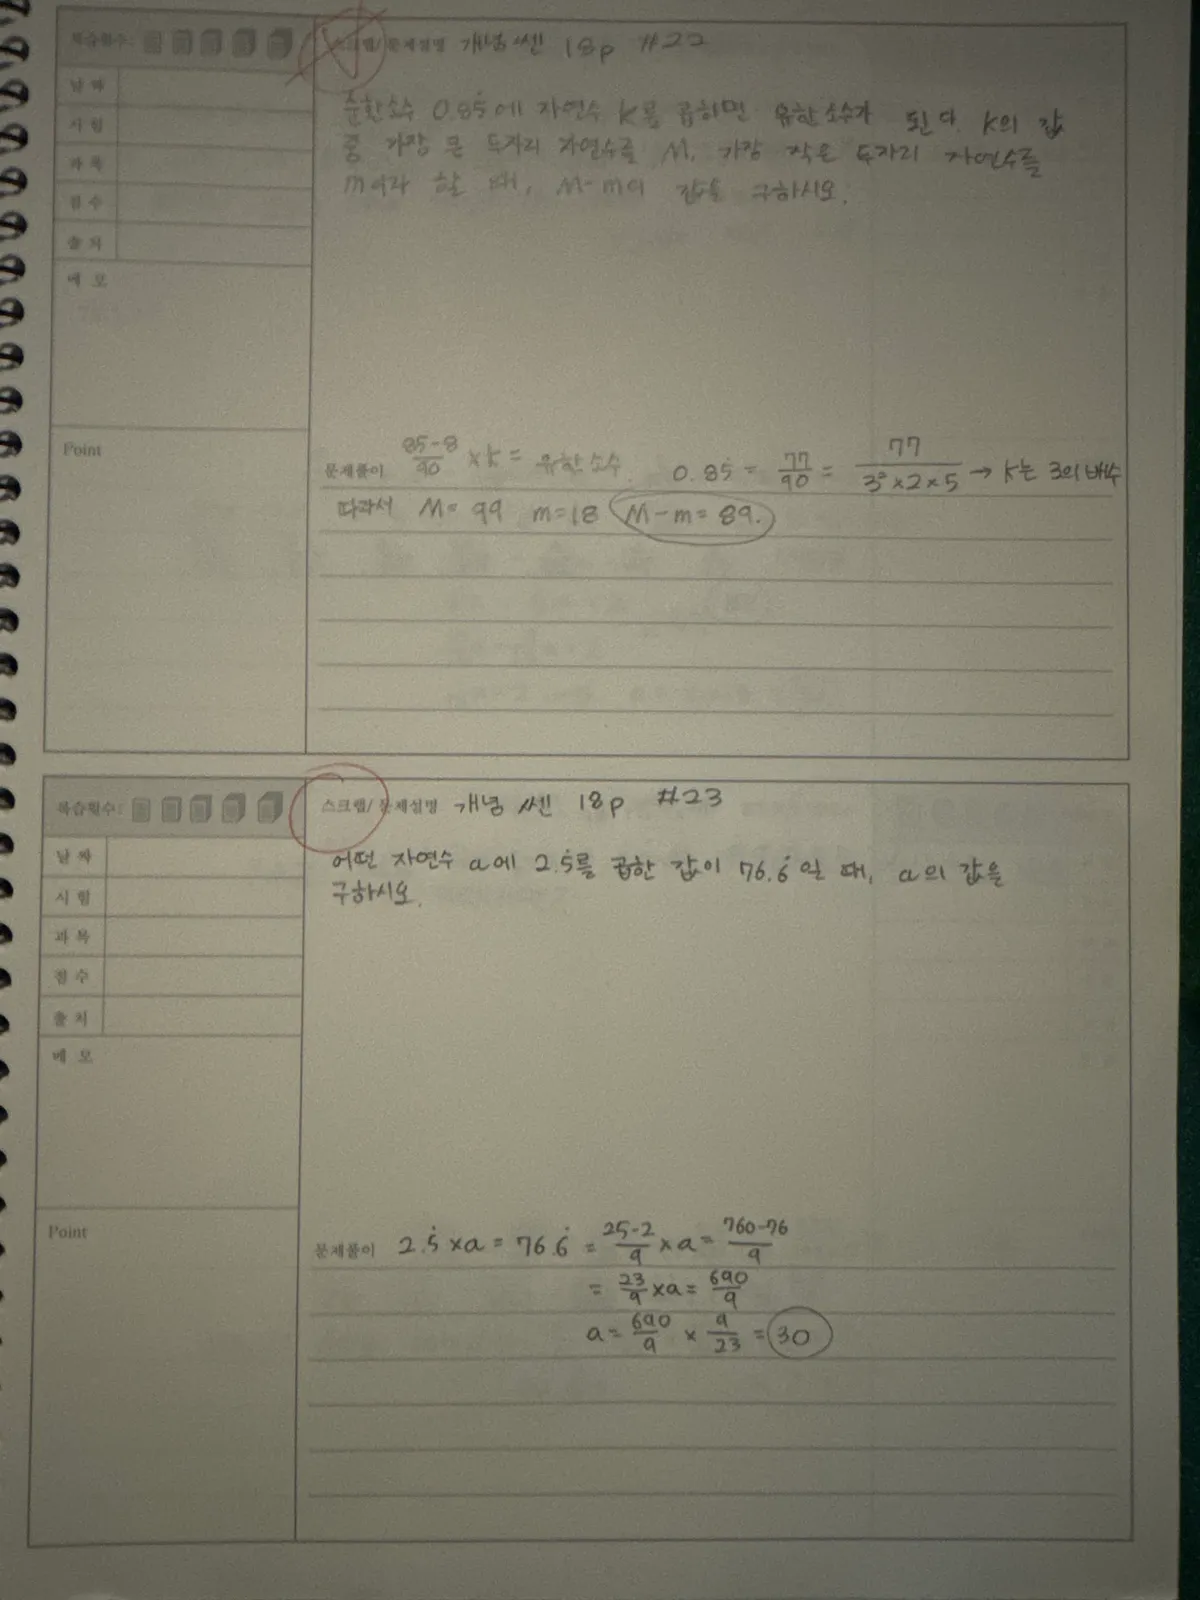 복습횟수:
스크랩/문제설명 개념 쎈 18p #22
날 짜
시 험
과 목
점 수
출 처
메 모
순환소수 0.85̇에 자연수 k를 곱하면 유한소수가 된다. k의 값
중 가장 큰 두자리 자연수를 M, 가장 작은 두자리 자연수를
m이라 할 때, M-m의 값을 구하시오.
Point
문제풀이 85-8/90 × k = 유한소수. 0.85̇ = 77/90 = 77/3²×2×5 → k는 3의 배수
따라서 M = 99 m=18 M-m = 89.
복습횟수:
스크랩/문제설명 개념 쎈 18p #23
날 짜
시 험
과 목
점 수
출 처
메 모
어떤 자연수 a에 2.5̇를 곱한 값이 76.6̇일 때, a의 값을
구하시오.
Point
문제풀이 2.5̇ × a = 76.6̇ = 25-2/9 × a = 760-76/9
= 23/9 × a = 690/9
a = 690/9 × 9/23 = 30